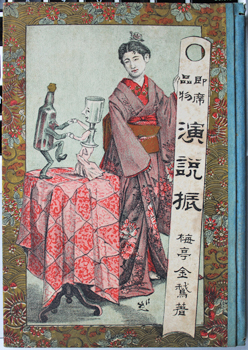 即席
品物
演説振
梅亭金鵞著